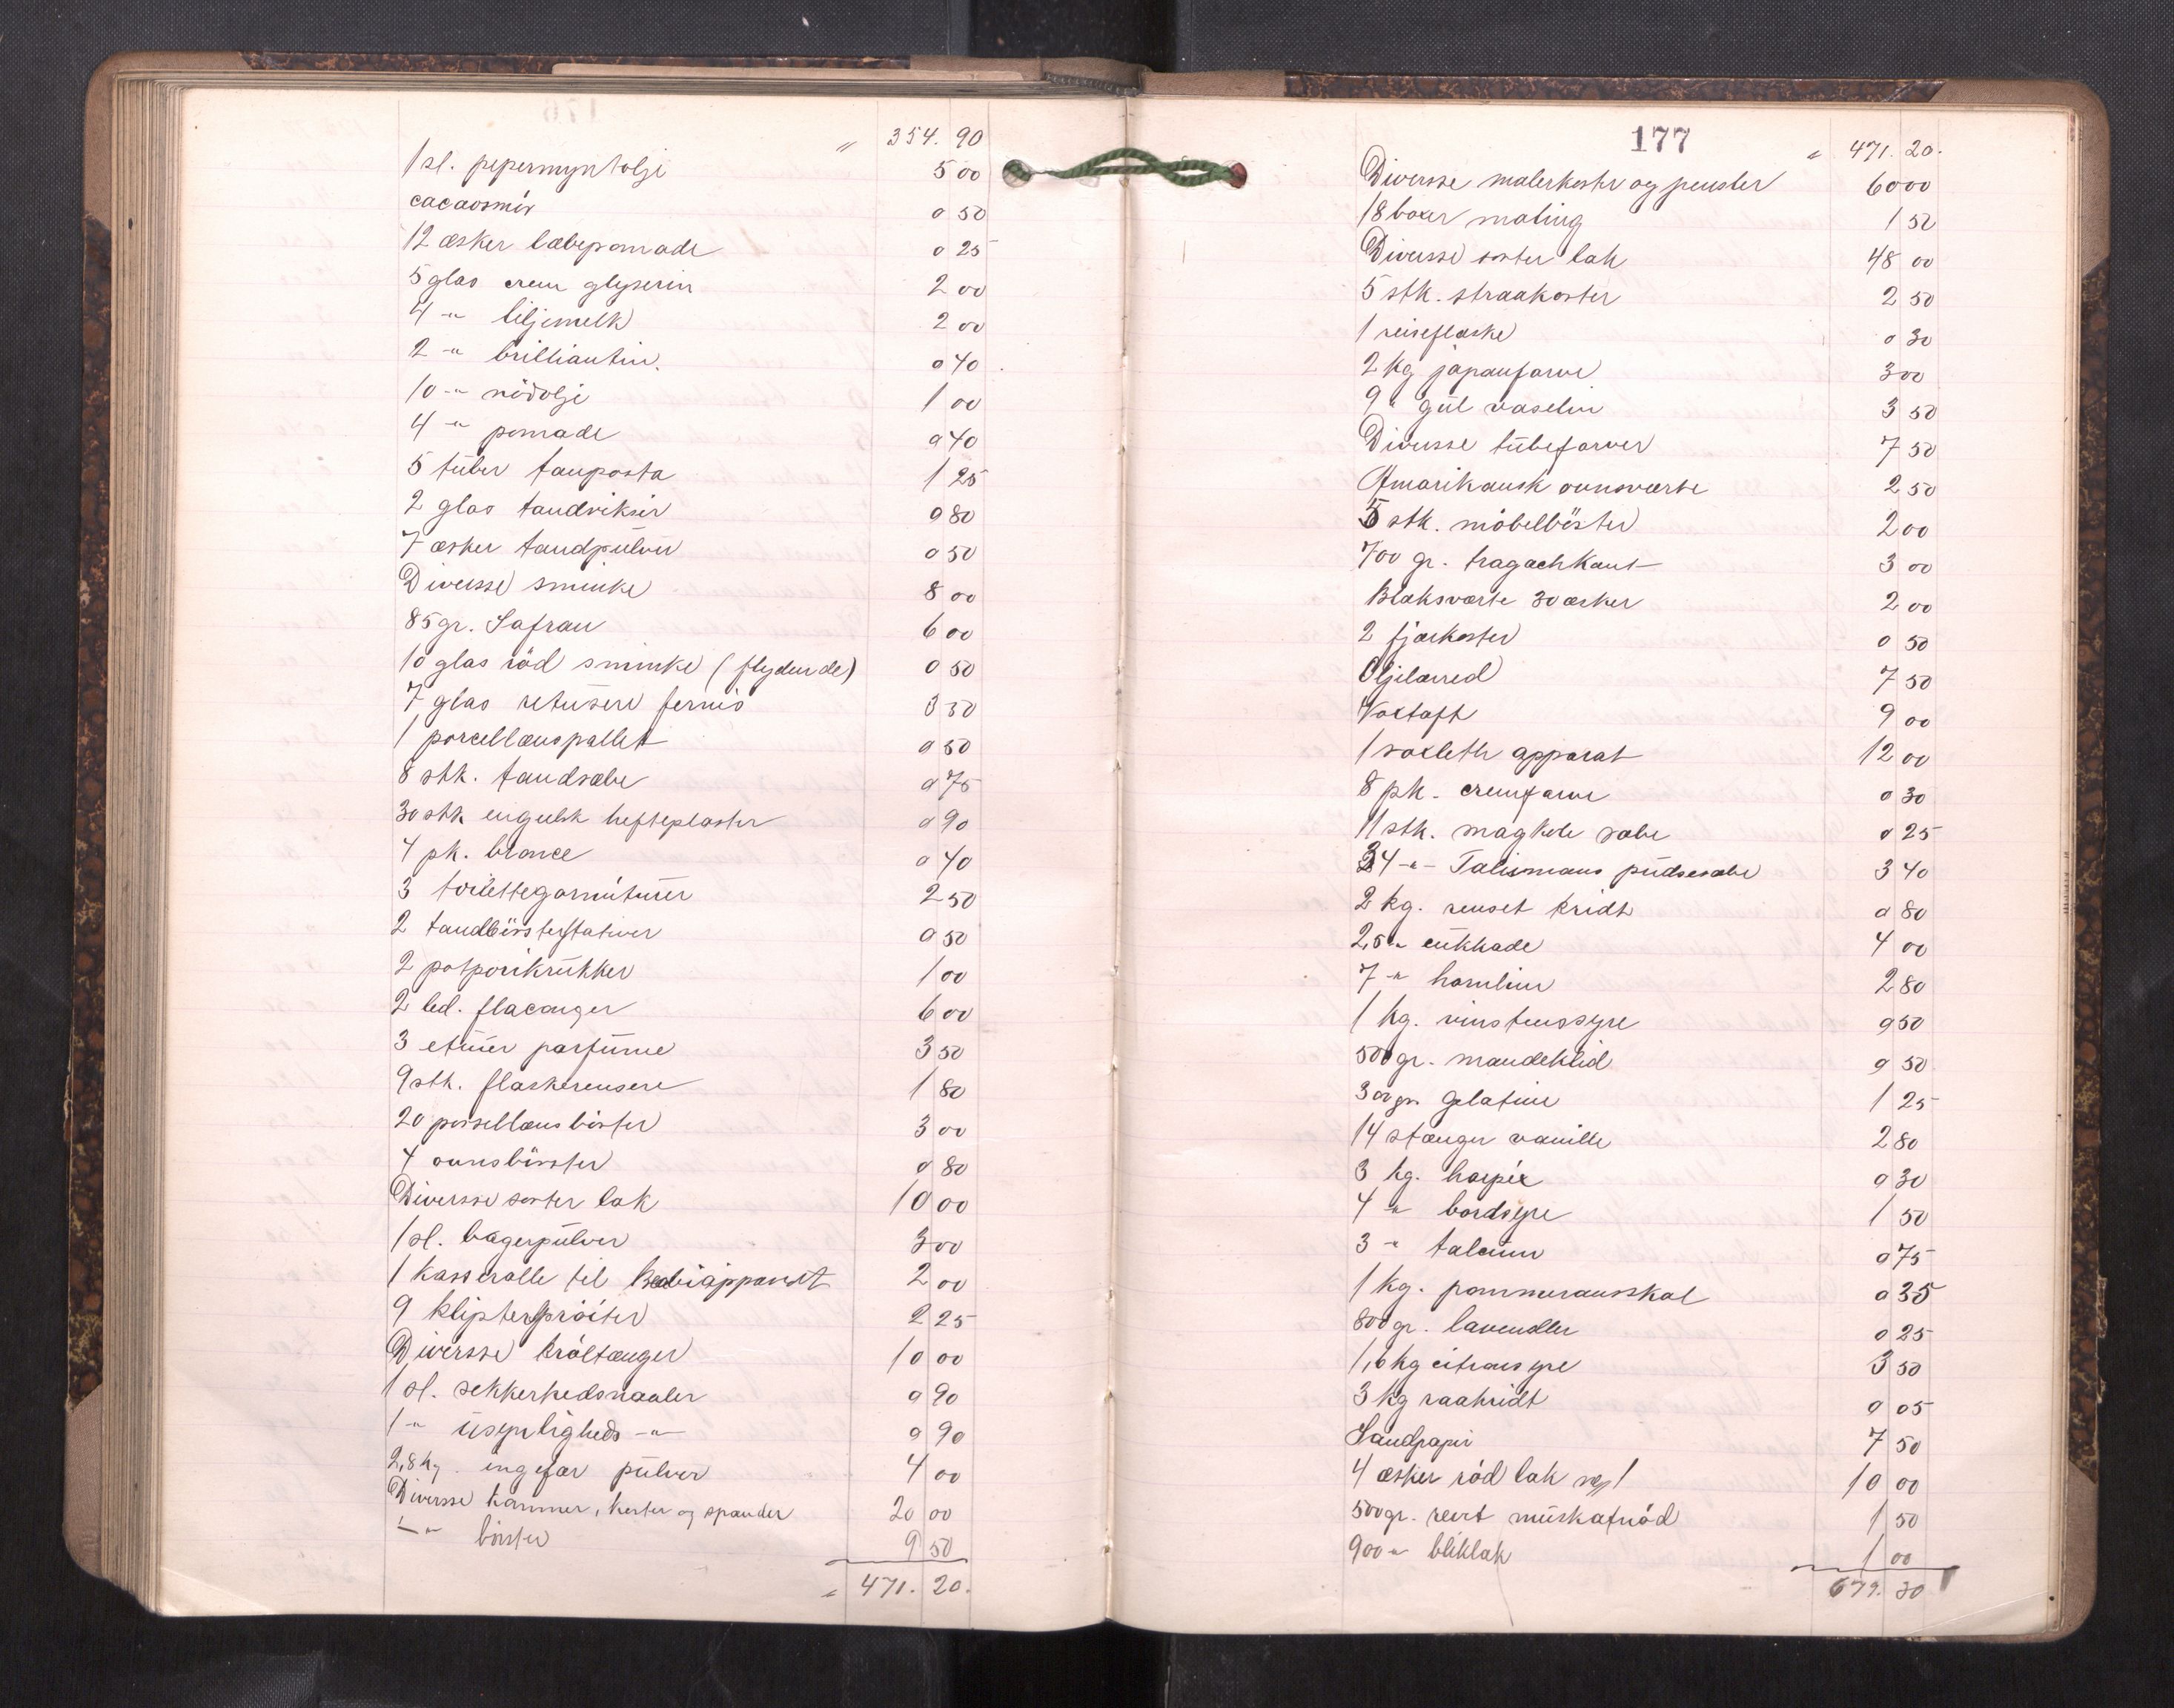 " 354. 90
1 sl. pepermyntolje 5 00
cacaosmör 0 50
12 æsker læbepomade 0 25
5 glas crem glyserin 2 00
4 -"- liljemelk 2 00
2 -"- brilliantin. 0 40
10 -"- nödolje 1 00
4 -"- pomade 0 40
5 tüber tanpasta 1 25
2 glas tandeliksir 0 80
7 æsker tandpülver 0 50
Diversse sminke 8 00
85 gr. Safran 6 00
10 glas röd sminke (flydende) 0 50
7 glas retusere fernis 3 50
1 porcellænspallet 0 50
8 stk. tandsæbe 0 75
30 stk engelsk hefteplaster 0 90
4 pk. bronce 0 40
3 toilettegarnitürer 2 50
2 tandbörsterstativer 0 50
2 potporikrükker 1 00
2 led. flaconger 6 00
3 etüier parfüme 3 50
9 stk. flaskerensere 1 80
20 porsellæns börster 3 00
4 ovnsbörster 0 80
Diversse sorter lak 10 00
1 sl. bagerpülver 3 00
1 kasserolle til apparat 2 00
9 klysterspröiter 2 25
Diversse kröltænger 10 00
1 sl. sikkerhedsnaaler 0 90
1 -"- üsynligheds -"- 0 90
2,8 kg. ingefær pülver 4 00
Diversse kammer, koster og spander 20 00
-"- börster 9 50
" 471. 20.
177
" 471. 20.
Diversse malerkoster og pensler 60 00
18 boxer maling 1 50
Diversse sorter lak 48 00
5 stk. straakoster 2 50
1 reiseflaske 0 30
2 kg japanfarve 3 00
9 " gül vaselin 3 50
Diversse tübefarver 7 50
Amerikansk ovnsværte 2 50
5 stk. möbelbörster 2 00
700 gr. tragachkant 3 00
Blaksværte 30 æsker 2 00
2 fjærkoster 0 50
Oljelærred 7 50
Voxtaft 9 00
1 soxleth apparat 12 00
8 pk. cremfarve 0 30
11 stk. sæbe 0 25
34 -"- Talismans püdsesæbe 3 40
2 kg. renset kridt 0 80
2,5 -"- cükkade 4 00
7 -"- hornlim 2 80
1 kg. vinstenssyre 0 50
500 gr. mandeklid 0 50
300 gr. gelatine 1 25
14 stænger vanille 2 80
3 kg. harpix 0 30
4 -"- bordsyre 1 50
3 -"- talcüm 0 75
1 kg. pommeransskal 0 35
800 gr. lavendler 0 25
1,6 kg citronsyre 3 50
3 kg raakridt 0 05
Sandpapir 7 50
4 æsker röd lak 10 00
500 gr. revet müskatnöd 1 50
900 -"- bliklak 1 00
679. 30